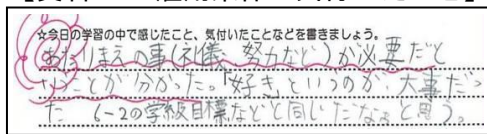 ☆今日の学習の中で感じたこと、気付いたことなどを書きましょう。
あたりまえの事(礼儀、努力など)が必要だと
いうことが分かった。「好き」というのが、大事だっ
た。6-2の学級目標などと同じだなぁと思う。